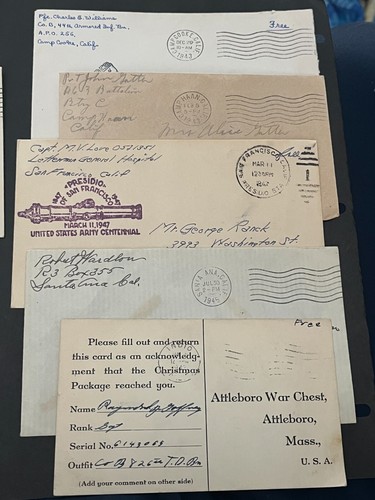 Pfc. Charles B. Williams
Co. B, 44th Armored Inf. Bn.
A.P.O. 256,
Camp Cooke, Calif.
Free
CAMP COOKE, CALIF.
DEC 29
1943
Pvt John Gitter
Battalion
Btry C
Camp Haan
Calif
CAMP HAAN, CALIF.
Mrs Alice Gitter
Capt. M. V. Lore
Letterman General Hospital
San Francisco Calif
"PRESIDIO"
OF SAN FRANCISCO
1847
1947
MARCH 11, 1947
UNITED STATES ARMY CENTENNIAL
SAN FRANCISCO, CALIF.
MAR 11
1947
PRESIDIO STA.
Free
Mr. George Ranck
3993 Washington St.
Robert Wardlow
R3 Box 355
Santa Ana Cal.
SANTA ANA, CALIF.
JUL 30
1945
Free
Please fill out and return
this card as an acknowledg-
ment that the Christmas
Package reached you.
Name Raymond
Rank Sgt
Serial No.
Outfit Co B 826th T.D. Bn
(Add your comment on other side)
INDIO
Attleboro War Chest,
Attleboro,
Mass.,
U. S. A.